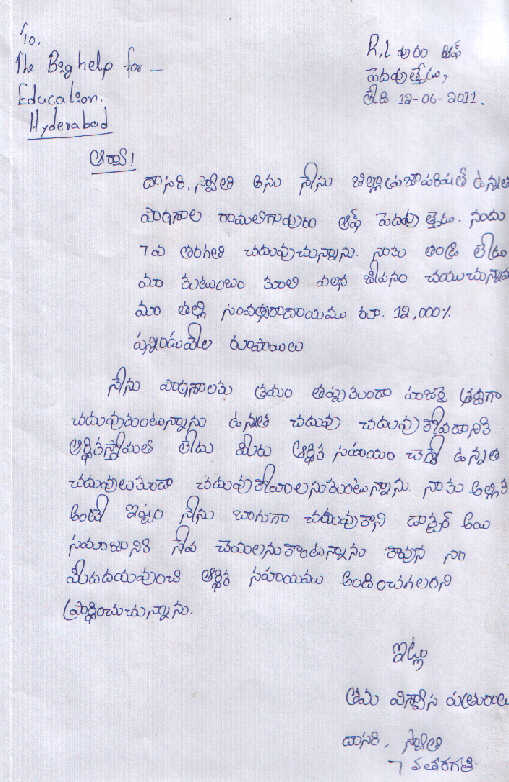 To.
The Big help for –
Education.
Hyderabad
R.L పురం ఆఫ్
పెదవుత్పేడు,
తేది 12-06-2011.
ఆర్యా!
దాసరి. స్వాతి అను నేను జిల్లాప్రజాపరిషత్ ఉన్నత
పాఠశాల రామలింగాపురం ఆఫ్ పెదవు నందు
7వ తరగతి చదువుచున్నాను. నాకు తండ్రి లేడు
మా కుటుంబం కూలి వలన జీవనం చేయుచున్నాము
మా తల్లి సంవత్సరాదాయము రూ. 12,000/.
పన్నెండువేల రూపాయలు
నేను పాఠశాలకు క్రమం తప్పకుండా హాజరై శ్రద్ధగా
చదువుకుంటున్నాను ఉన్నత చదువు చదువుకోవడానికి
ఆర్థికస్తోమత లేదు మీరు ఆర్థిక సహాయం చేస్తే ఉన్నత
చదువులుకుడా చదువుకోవాలనుకుంటున్నాను. నాకు
అంటే ఇష్టం నేను బాగుగా చదువుకొని డాక్టర్ అయి
సమాజానికి సేవ చేయాలనుకొంటున్నాను కావున నా
మీదదయవుంచి ఆర్థిక సహాయము అందించగలరని
ప్రార్థించుచున్నాను.
ఇట్లు
తమ విశ్వాస పాత్రురాలు
దాసరి. స్వాతి
7 వతరగతి